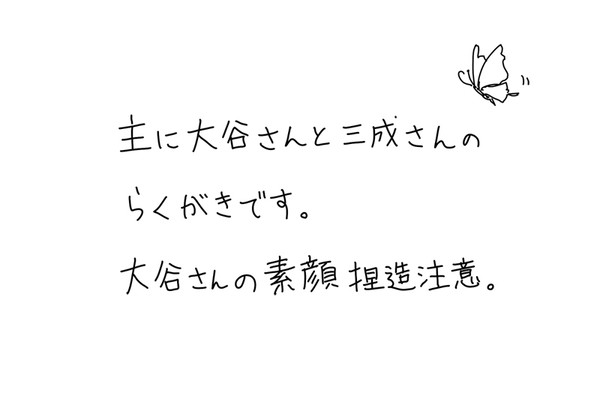 主に大谷さんと三成さんの
らくがきです。
大谷さんの素顔捏造注意。